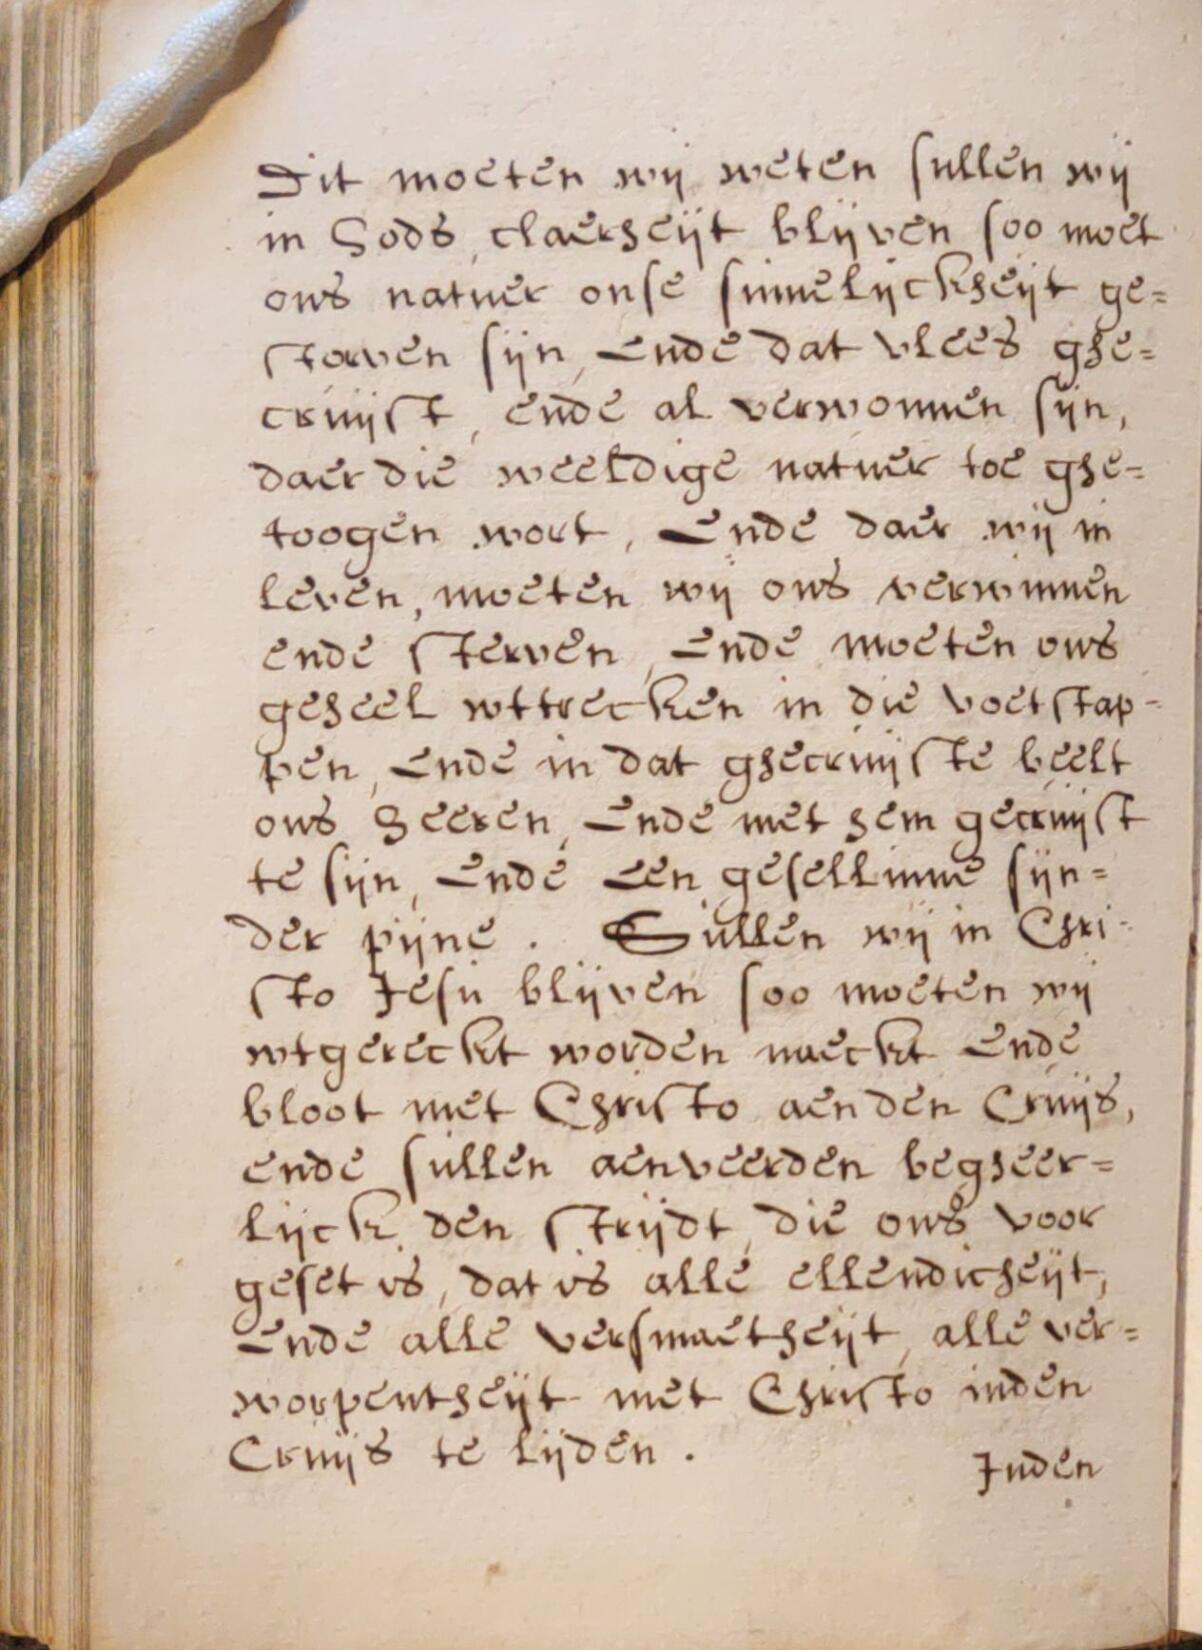 Dit moeten wij weten sullen wij
in Gods, claerheijt blijven soo moet
ons natuer onse sinnelijckheijt ge=
storven sijn, Ende dat vlees ghe=
cruijst, ende al verwonnen sijn,
daer die weeldige natuer toe ghe=
toogen wort, Ende daer wij in
leven, moeten wij ons verwinnen
ende sterven, Ende moeten ons
geheel wttrecken in die voetstap-
pen, Ende in dat ghecruijste beelt
ons Heeren, Ende met hem gecruijst
te sijn, Ende Een gesellinne sijn=
der pijne. Sullen wij in Chri-
sto Jesu blijven soo moeten wij
wtgereckt worden naeckt Ende
bloot met Christo aen den Cruijs,
ende sullen aenveerden begheer=
lijck, den strijdt, die ons voor
geset is, dat is alle ellendicheijt,
Ende alle versmaetheijt, alle ver=
worpentheijt met Christo inden
Cruijs te lijden.
Inden